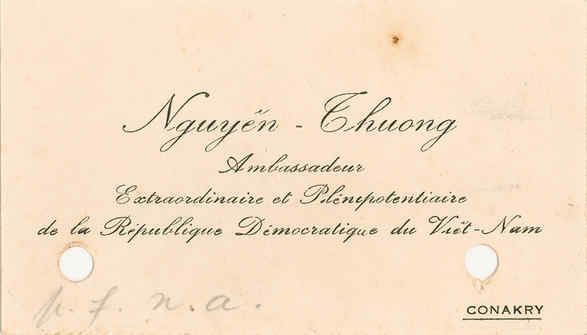 Nguyễn - Thuong
Ambassadeur
Extraordinaire et Plénipotentiaire
de la République Démocratique du Viêt-Nam
p. f. n. a.
CONAKRY